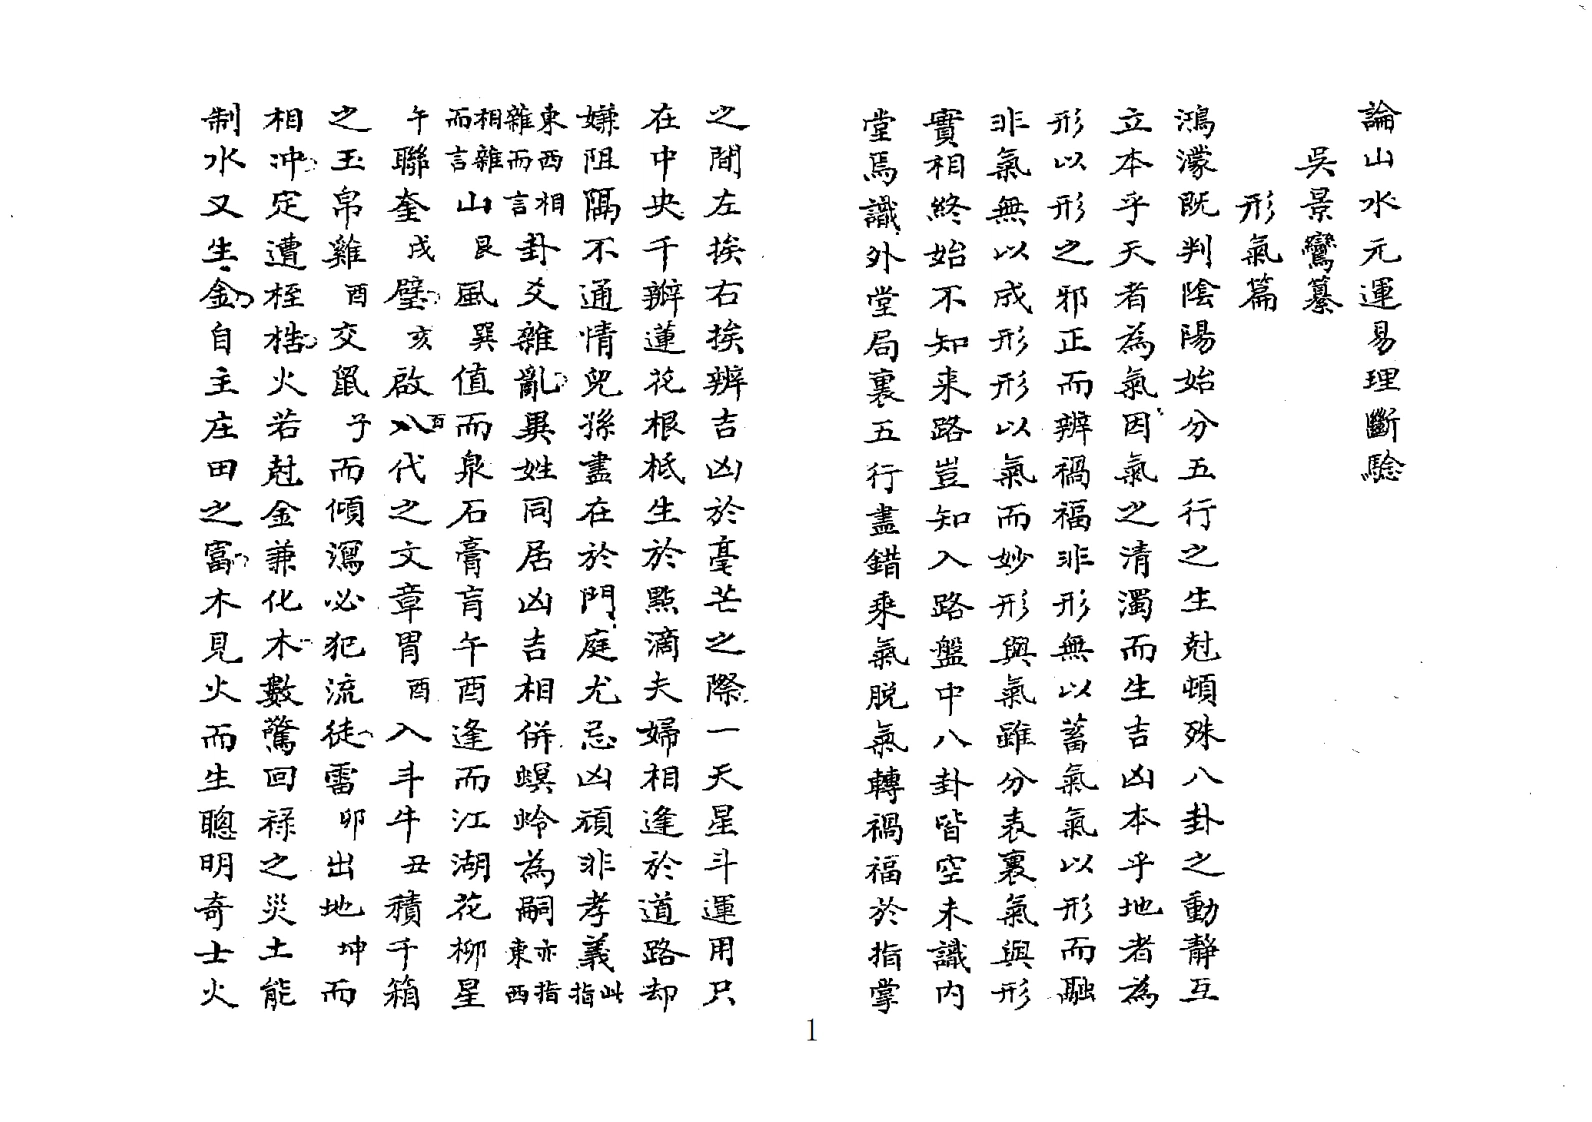 論山水元運易理斷驗
吳景鸞纂
形氣篇
鴻濛既判陰陽始分五行之生尅頓殊八卦之動靜互
立本乎天者為氣因氣之清濁而生吉凶本乎地者為
形以形之邪正而辨禍福非形無以蓄氣氣以形而融
非氣無以成形形以氣而妙形與氣雖分表裏氣與形
實相終始不知來路豈知入路盤中八卦皆空未識內
堂焉識外堂局裏五行盡錯乘氣脱氣轉禍福於指掌
之間左挨右挨辨吉凶於毫芒之際一天星斗運用只
在中央千辦蓮花根柢生於點滴夫婦相逢於道路却
嫌阻隔不通情兒孫盡在於門庭尤忌凶頑非孝義此指
東西相雜而言卦爻雜亂異姓同居凶吉相併螟蛉為嗣亦指東西
相雜而言山艮風巽值而泉石膏肓午酉逢而江湖花柳星
午聯奎戌壁亥啟八百代之文章胃酉入斗牛丑積千箱
之玉帛雞酉交鼠子而傾瀉必犯流徒雷卯出地坤而
相冲定遭桎梏火若尅金兼化木數驚回祿之災土能
制水又生金自主庄田之富木見火而生聰明奇士火
1